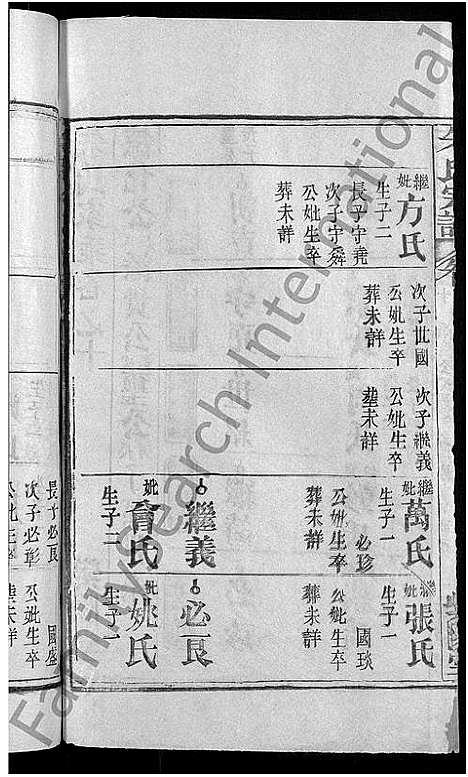 氏宗譜
繼妣方氏
生子二
長子守堯
次子守舜
公妣生卒
葬未詳
次子世國
公妣生卒
葬未詳
次子繼義
公妣生卒
塟未詳
繼妣萬氏
生子一
必珍
公妣生卒
葬未詳
繼義
妣會氏
生子二
繼妣張氏
生子一
國琰
公妣生卒
葬未詳
必艮
妣姚氏
生子一
長子必艮
次子必彰
公妣生卒
國盛
公妣生卒
塟未詳
FamilySearch International